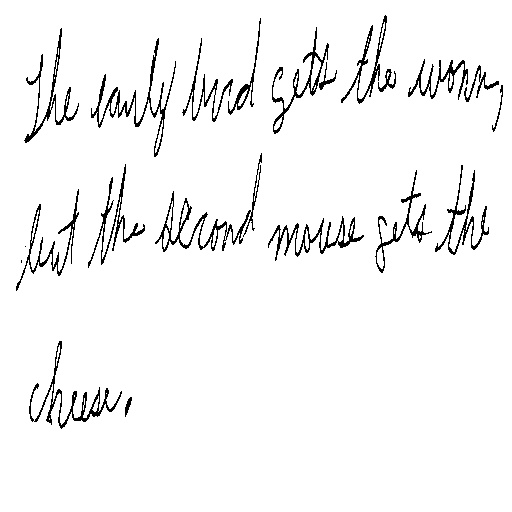 The early bird gets the worm,
but the second mouse gets the
cheese.